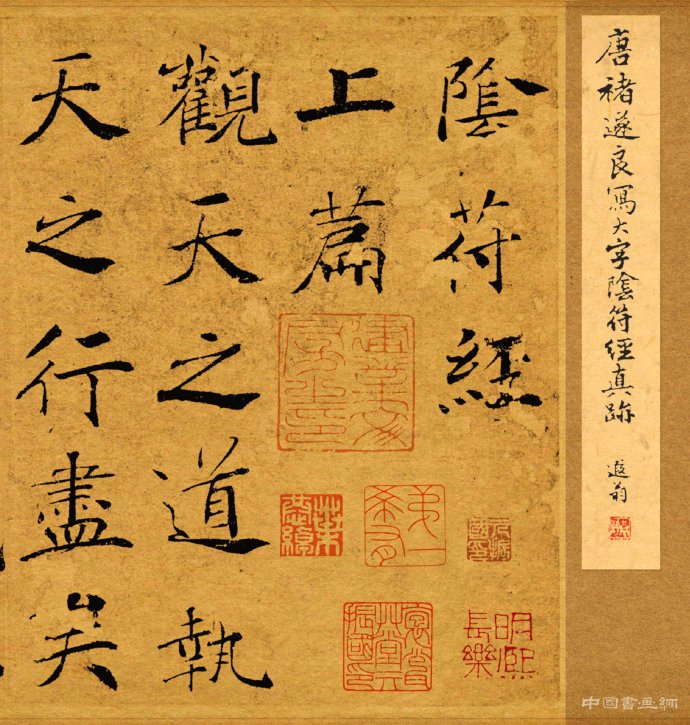 唐褚遂良寫大字陰符經真跡
遐翁
陰符經
上篇
觀天之道執
天之行盡矣
明熙
長樂
中国書画網